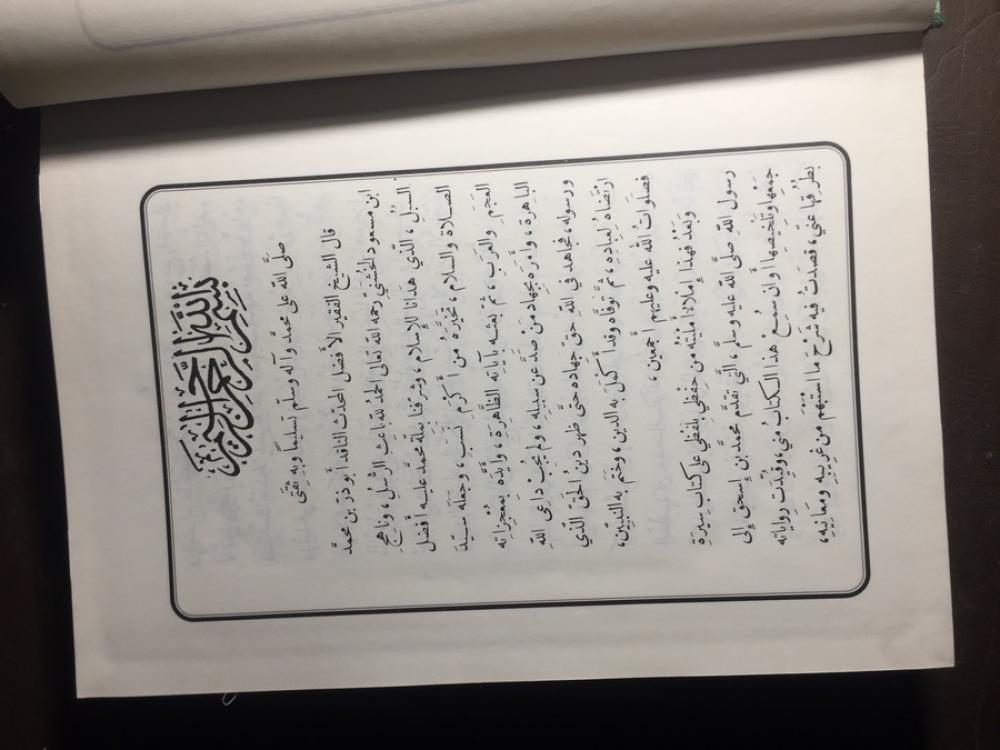 بسم الله الرحمن الرحيم
صَلَّى اللهُ عَلَى مُحَمَّدٍ وَآلِهِ وسلّم تسليماً وبِهِ ثِقَتِي
قال الشيخ الفقير الأفضل المحدّث الناقد أبو ذَر بن محمد
ابن مسعود الخُشَنِيّ رحمه الله تعالى الحمدُ لله باعثِ الرُّسُلِ، وناهِجِ
السُّبُلِ، الذي هَدَانا للإسلام، وشرّفنا بملّة محمّد عليه أفضل
الصلاة والسلام، تَخَيَّرَهُ من أكْرَمِ نَسَبٍ، وجعَلَه سيّدَ
العَجَمِ والعَرَبِ، ثم بعثه بآياتِه الظَّاهِرَةِ، وأيَّدَه بمعجزاته
الباهِرَةِ، وأمرَه بجهادِ مَنْ صَدَّ عن سبيلِه، ولم يُجِبْ دَاعِيَ اللهِ
ورسولِه، فجاهد في اللهِ حق جهاده حتى ظهر دينُ الحَقّ الذي
ارْتَضَاهُ لعبادِهِ، ثم توفّاه وقد أكمَلَ به الدين، وختم به النبيّين،
فصَلَوَاتُ الله عليه وعليهم أجمعين،
وَبَعْدُ فهذا إملاءٌ أمليْتُه من حِفظِي بلَفظِي على كتاب سِيرَةِ
رسول الله صلّى الله عليه وسلّم، التي تقدَّم محمدُ بن إسحق إلى
جَمْعِها وتَلْخيصِها أوانَ سُمِعَ هذا الكتابُ مِنّي، وقُيِّدَت رواياته
بطُرُقِها عنِّي، قصَدتُ فيه شَرْحَ ما استَبْهَمَ من غريبِهِ ومعانيِهِ،